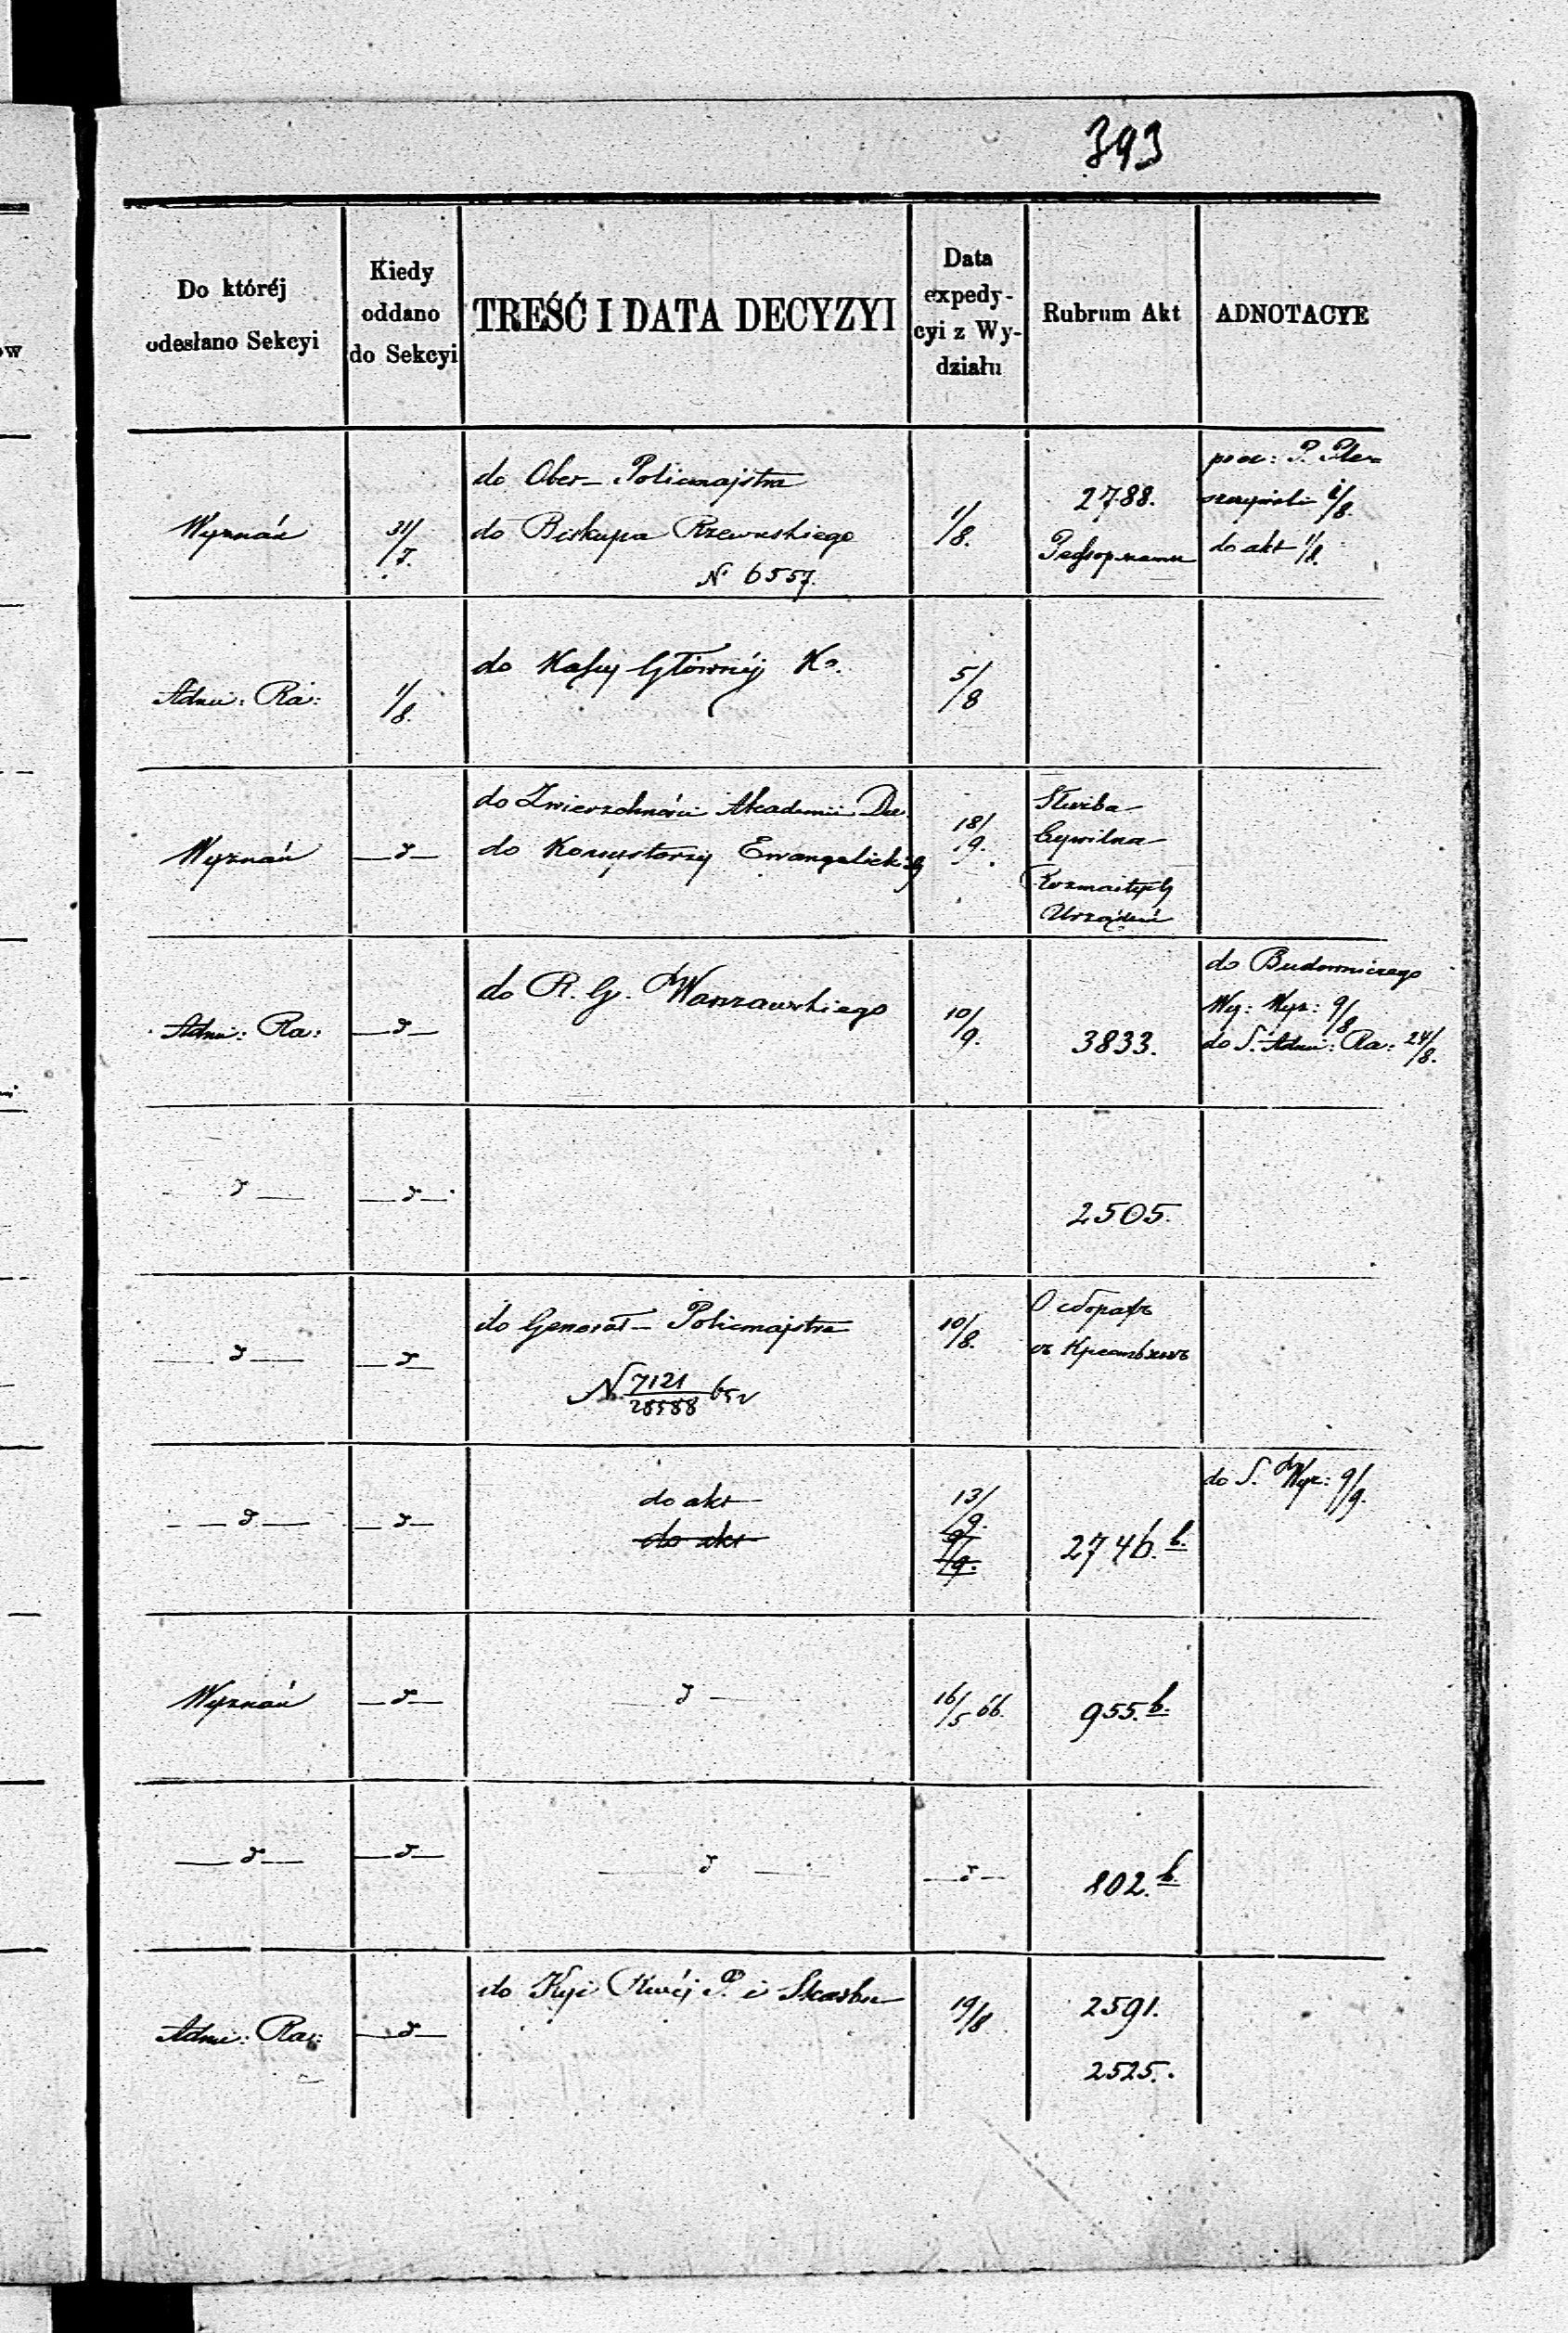 393
Do któréj
odesłano Sekcyi
Kiedy
oddano
do Sekcyi
TREŚĆ I DATA DECYZYI
Data
expedy-
cyi z Wy-
działu
Rubrum Akt
ADNOTACYE
ow
Wyznań
31/7.
do Ober- Policmajstra
do Biskupa Rzewuskiego
N 6557.
1/8.
2788.
do akt
Adm: Ra:
1/8.
do Kassy Głównéj Kr.
5/8
Wyznań
— d —
do Zwierzchności Akademii Du.
do Konsystorzy Ewangelickiej
18/9.
Służba
Cywilna
Rozmaitych
Urządzeń
Adm: Ra:
— d —
do R. G. Warszawskiego
10/9.
3833.
do Budowniczego
Wy: Wyz: 9/8
do S. Adm: Ra: 24/8.
— d —
— d —
2505.
— d —
— d —
do Generał- Policmajstra
N 7121/28588
10/8.
О сборахъ
— d —
— d —
do akt
do akt
13/9.
9/9.
2746. b.
do S. Wyz: 9/9.
Wyznań
— d —
— d —
16/5 66.
955. b.
— d —
— d —
— d —
— d —
802. b.
Adm: Ra:
— d —
do Kyi Rwéj P. i Skarbu
19/8
2591.
2525.